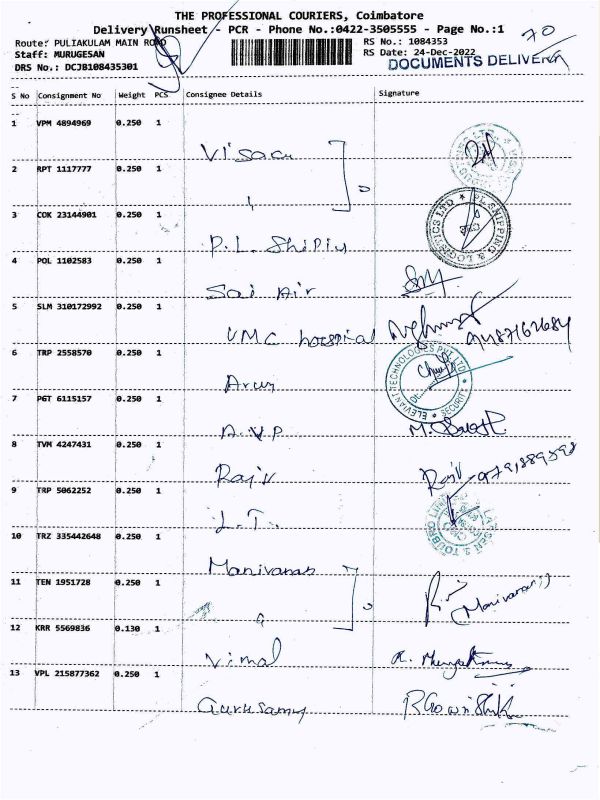 THE PROFESSIONAL COURIERS, Coimbatore
Delivery Runsheet - PCR - Phone No.:0422-3505555 - Page No.:1
70
Route: PULIAKULAM MAIN ROAD
RS No.: 1084353
Staff: MURUGESAN
RS Date: 24-Dec-2022
DRS No.: DCJB108435301
DOCUMENTS DELIVERY
S No Consignment No Weight PCS Consignee Details Signature
1 VPM 4894969 0.250 1
2 RPT 1117777 0.250 1
3 COK 23144901 0.250 1
P.L. Shipin
4 POL 1102583 0.250 1
Sai Air
5 SLM 310172992 0.250 1
VMC hospital
6 TRP 2558570 0.250 1
Arun
ELEVIANT TECHNOLOGIES PVT LTD SECURITY
7 PGT 6115157 0.250 1
A.V.P
8 TVM 4247431 0.250 1
Rajiv
Rajiv
9 TRP 5062252 0.250 1
L.T.
10 TRZ 335442648 0.250 1
Manivanan
11 TEN 1951728 0.250 1
(Manivanan)
12 KRR 5569836 0.130 1
Vimal
13 VPL 215877362 0.250 1
Gurusamy